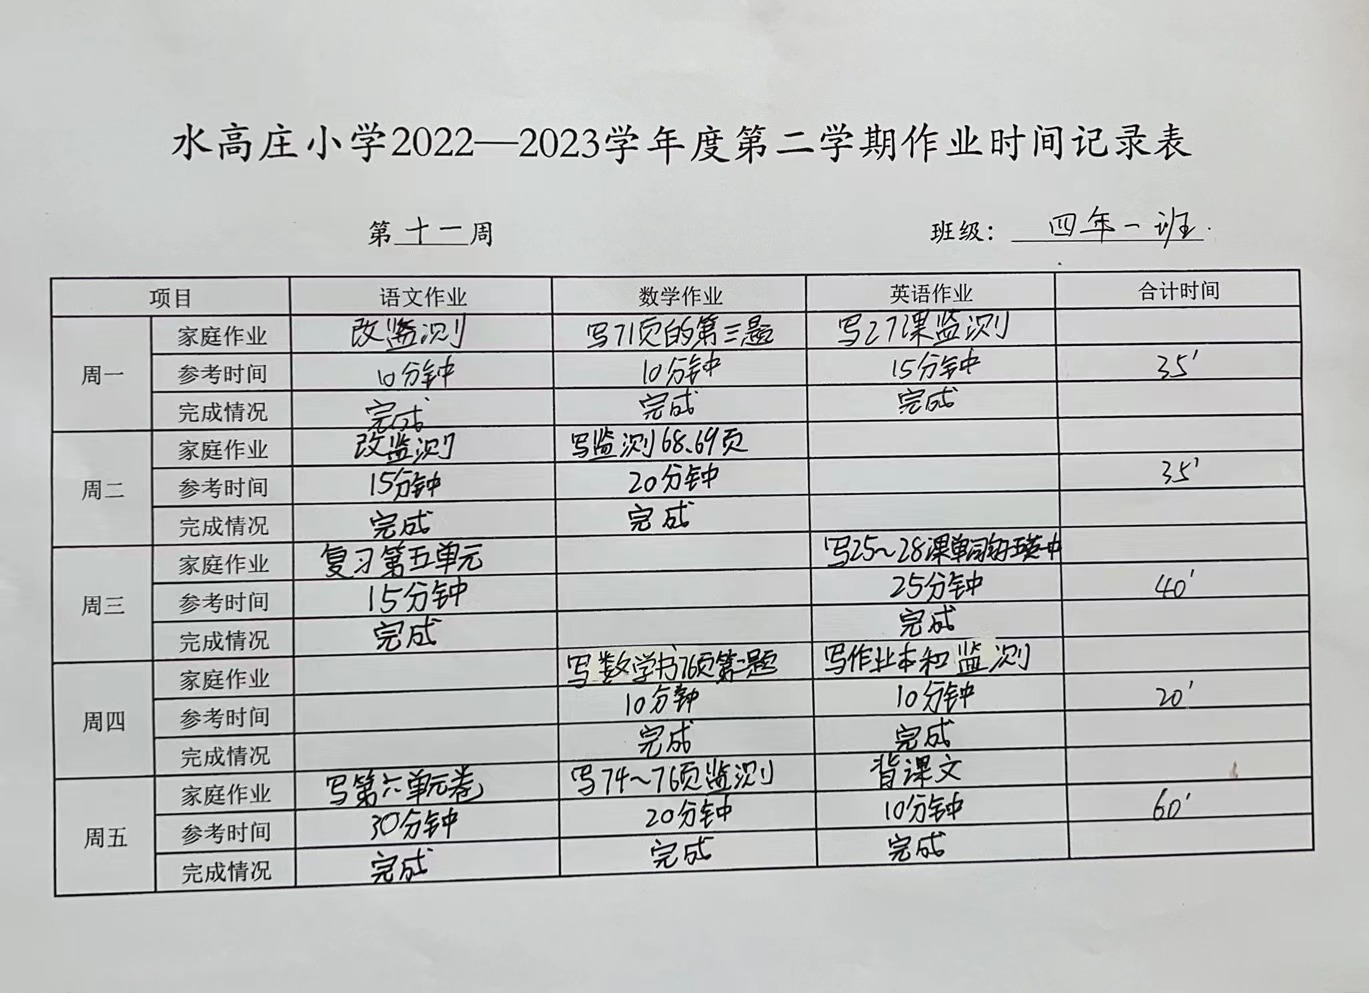 水高庄小学2022—2023学年度第二学期作业时间记录表
第十一周 班级：四年一班.
项目 语文作业 数学作业 英语作业 合计时间
周一
家庭作业 改监测 写71页的第三题 写27课监测
参考时间 10分钟 10分钟 15分钟 35′
完成情况 完成 完成 完成
周二
家庭作业 改监测 写监测68.69页
参考时间 15分钟 20分钟 35′
完成情况 完成 完成
周三
家庭作业 复习第五单元 写25~28课单词
参考时间 15分钟 25分钟 40′
完成情况 完成 完成
周四
家庭作业 写数学书76页第二题 写作业本和监测
参考时间 10分钟 10分钟 20′
完成情况 完成 完成
周五
家庭作业 写第六单元卷 写74~76页监测 背课文
参考时间 30分钟 20分钟 10分钟 60′
完成情况 完成 完成 完成